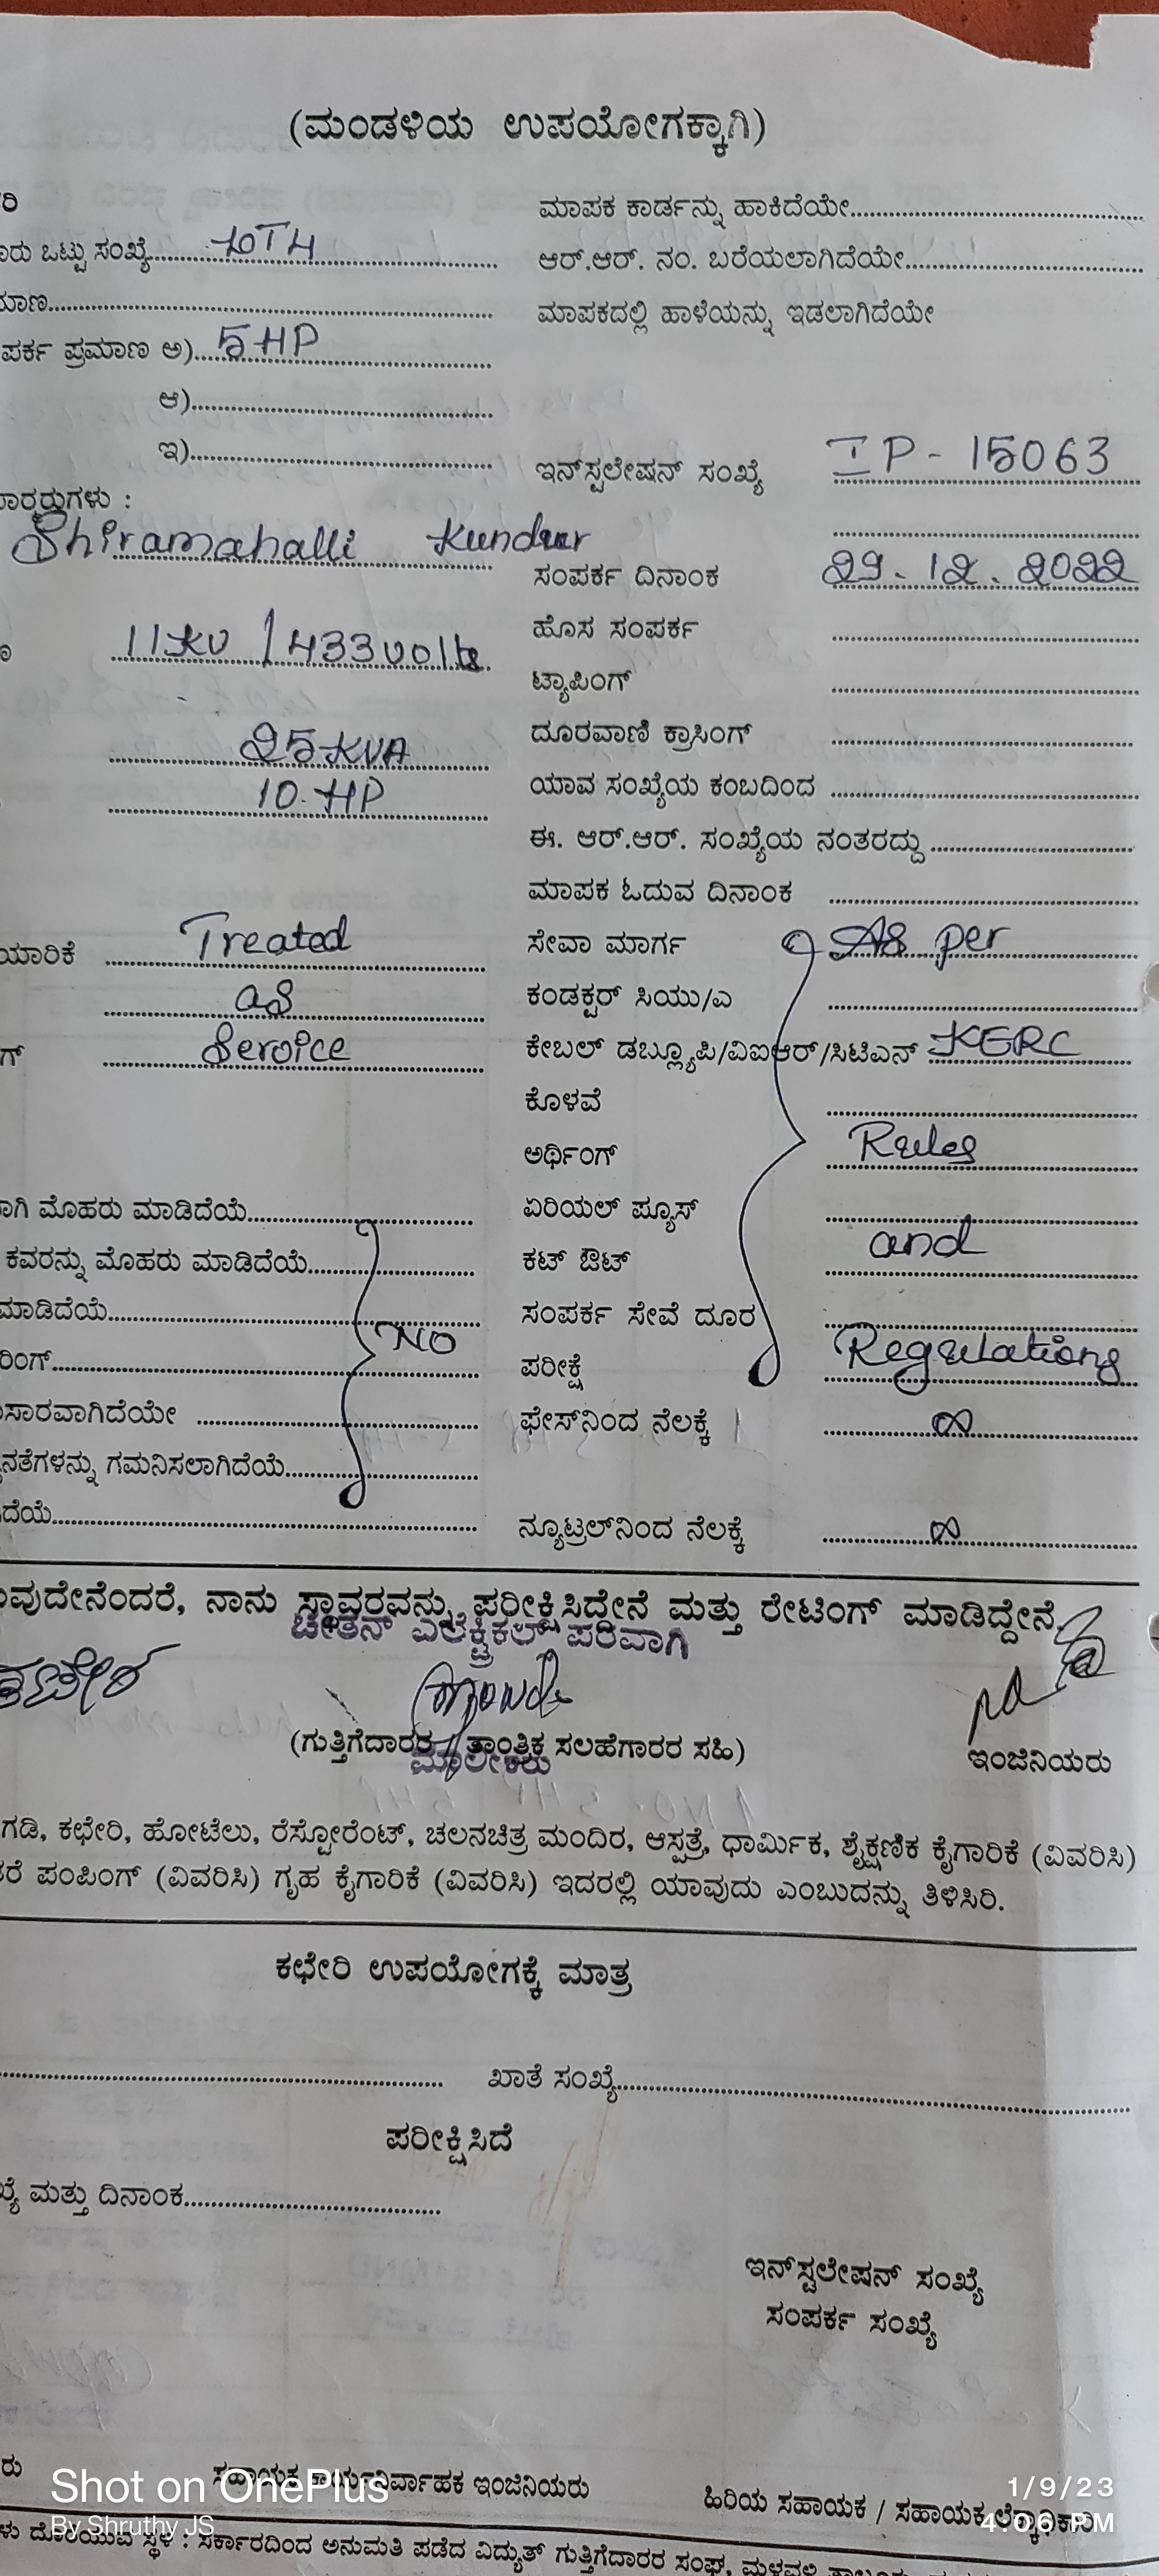 (ಮಂಡಳಿಯ ಉಪಯೋಗಕ್ಕಾಗಿ)
ರಿ
ಮಾಪಕ ಕಾರ್ಡನ್ನು ಹಾಕಿದೆಯೇ
ಒಟ್ಟು ಸಂಖ್ಯೆ
ಆರ್.ಆರ್. ನಂ. ಬರೆಯಲಾಗಿದೆಯೇ
ಮಾಣ
ಮಾಪಕದಲ್ಲಿ ಹಾಳೆಯನ್ನು ಇಡಲಾಗಿದೆಯೇ
ಪರ್ಕ ಪ್ರಮಾಣ ಅ) 5HP
ಆ)
ಇ)
ಇನ್‌ಸ್ಟಲೇಷನ್ ಸಂಖ್ಯೆ IP-15063
Shiramahalli Kunduur
ಸಂಪರ್ಕ ದಿನಾಂಕ 29.12.2022
ಹೊಸ ಸಂಪರ್ಕ
11KV / 433volts
ಟ್ಯಾಪಿಂಗ್
ದೂರವಾಣಿ ಕ್ರಾಸಿಂಗ್
25 KVA
ಯಾವ ಸಂಖ್ಯೆಯ ಕಂಬದಿಂದ
10.HP
ಈ. ಆರ್.ಆರ್. ಸಂಖ್ಯೆಯ ನಂತರದ್ದು
ಮಾಪಕ ಓದುವ ದಿನಾಂಕ
ಯಾರಿಕೆ Treated
ಸೇವಾ ಮಾರ್ಗ As per
as
ಕಂಡಕ್ಟರ್ ಸಿಯು/ಎ
ಗ್ Service
ಕೇಬಲ್ ಡಬ್ಲ್ಯೂಪಿ/ವಿಐಆರ್/ಸಿಟಿಎನ್ KERC
ಕೊಳವೆ
ಅರ್ಥಿಂಗ್ Rules
ಾಗಿ ಮೊಹರು ಮಾಡಿದೆಯೆ
ಏರಿಯಲ್ ಫ್ಯೂಸ್
ಕವರನ್ನು ಮೊಹರು ಮಾಡಿದೆಯೆ
ಕಟ್ ಔಟ್ and
ಮಾಡಿದೆಯೆ
ಸಂಪರ್ಕ ಸೇವೆ ದೂರ
ರಿಂಗ್ NO
ಪರೀಕ್ಷೆ Regulations
ಸಾರವಾಗಿದೆಯೇ
ಫೇಸ್‌ನಿಂದ ನೆಲಕ್ಕೆ ∞
ನತೆಗಳನ್ನು ಗಮನಿಸಲಾಗಿದೆಯೆ
ದೆಯೆ
ನ್ಯೂಟ್ರಲ್‌ನಿಂದ ನೆಲಕ್ಕೆ ∞
ವುದೇನೆಂದರೆ, ನಾನು ಸ್ಥಾವರವನ್ನು ಪರೀಕ್ಷಿಸಿದ್ದೇನೆ ಮತ್ತು ರೇಟಿಂಗ್ ಮಾಡಿದ್ದೇನೆ
ಚೇತನ್ ಎಲೆಕ್ಟ್ರಿಕಲ್ ಪರವಾಗಿ
(ಗುತ್ತಿಗೆದಾರರ / ತಾಂತ್ರಿಕ ಸಲಹೆಗಾರರ ಸಹಿ)
ಮಾಲೀಕರು
ಇಂಜಿನಿಯರು
ಗಡಿ, ಕಛೇರಿ, ಹೋಟೆಲು, ರೆಸ್ಟೋರೆಂಟ್, ಚಲನಚಿತ್ರ ಮಂದಿರ, ಆಸ್ಪತ್ರೆ, ಧಾರ್ಮಿಕ, ಶೈಕ್ಷಣಿಕ ಕೈಗಾರಿಕೆ (ವಿವರಿಸಿ)
ರೆ ಪಂಪಿಂಗ್ (ವಿವರಿಸಿ) ಗೃಹ ಕೈಗಾರಿಕೆ (ವಿವರಿಸಿ) ಇದರಲ್ಲಿ ಯಾವುದು ಎಂಬುದನ್ನು ತಿಳಿಸಿರಿ.
ಕಛೇರಿ ಉಪಯೋಗಕ್ಕೆ ಮಾತ್ರ
ಖಾತೆ ಸಂಖ್ಯೆ
ಪರೀಕ್ಷಿಸಿದೆ
ಖ್ಯೆ ಮತ್ತು ದಿನಾಂಕ
ಇನ್‌ಸ್ಟಲೇಷನ್ ಸಂಖ್ಯೆ
ಸಂಪರ್ಕ ಸಂಖ್ಯೆ
ರು ಸಹಾಯಕ ಕಾರ್ಯನಿರ್ವಾಹಕ ಇಂಜಿನಿಯರು ಹಿರಿಯ ಸಹಾಯಕ / ಸಹಾಯಕ ಲೆಕ್ಕಾಧಿಕಾರಿ
Shot on OnePlus
By Shruthy JS
1/9/23
4:06 PM
ಳು ದೊರೆಯುವ ಸ್ಥಳ : ಸರ್ಕಾರದಿಂದ ಅನುಮತಿ ಪಡೆದ ವಿದ್ಯುತ್ ಗುತ್ತಿಗೆದಾರರ ಸಂಘ, ಮಳವಳ್ಳಿ